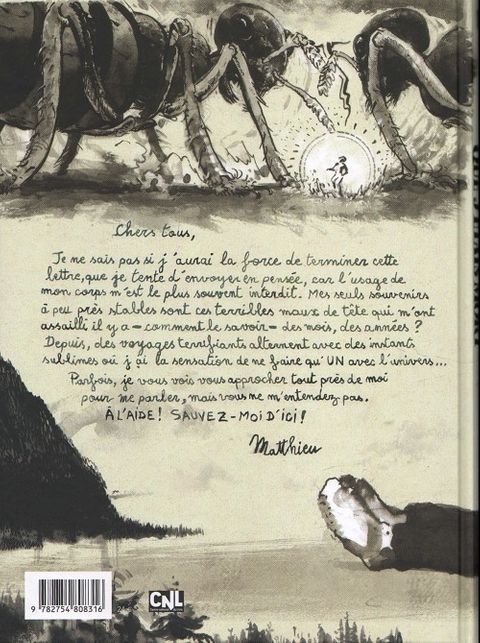 Chers tous,
Je ne sais pas si j'aurai la force de terminer cette
lettre, que je tente d'envoyer en pensée, car l'usage de
mon corps m'est le plus souvent interdit. Mes seuls souvenirs
à peu près stables sont ces terribles maux de tête qui m'ont
assailli il y a - comment le savoir - des mois, des années ?
Depuis, des voyages terrifiants alternent avec des instants
sublimes où j'ai la sensation de ne faire qu'UN avec l'univers...
Parfois, je vous vois vous approcher tout près de moi
pour me parler, mais vous ne m'entendez pas.
À L'AIDE ! SAUVEZ-MOI D'ICI !
Matthieu
CNL
9 782754 808316